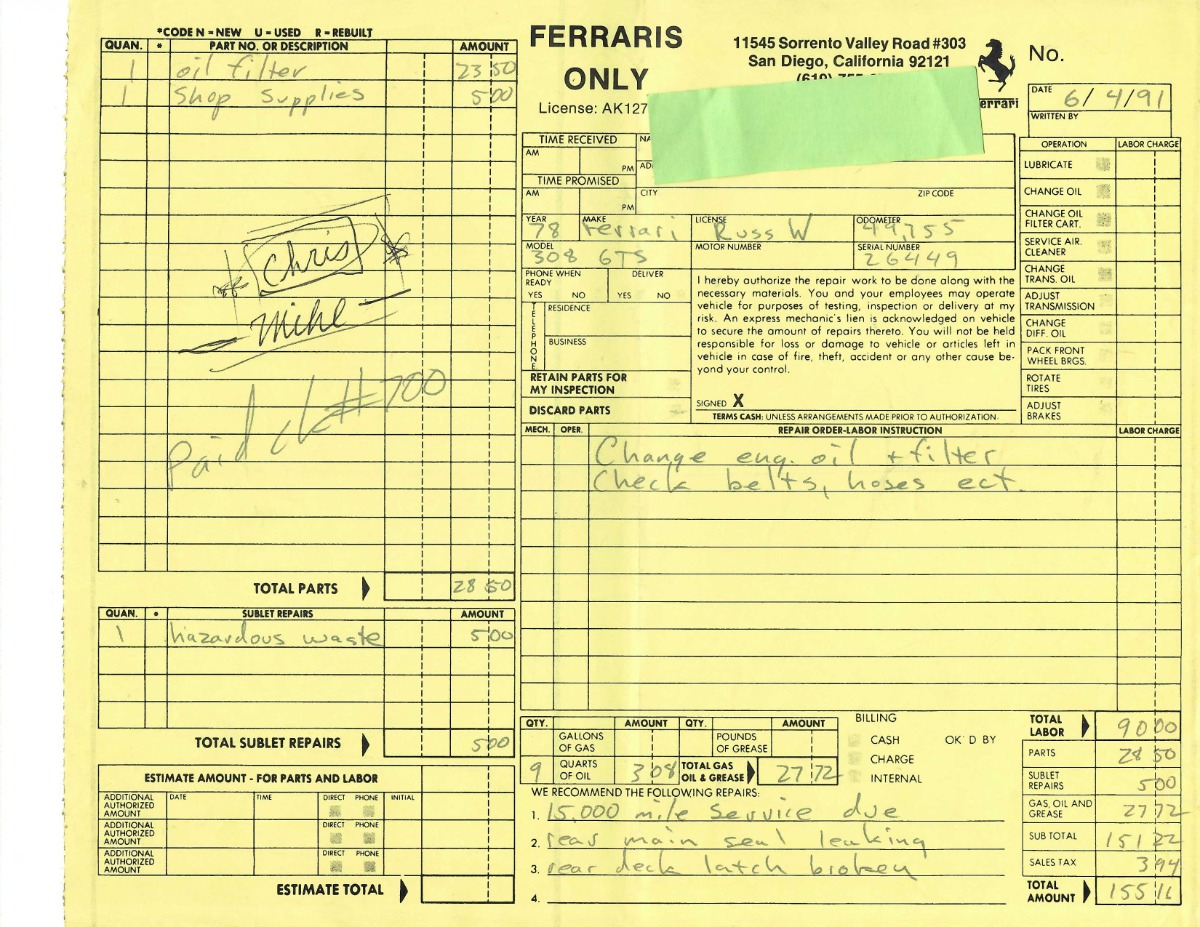 *CODE N = NEW U = USED R = REBUILT
QUAN. * PART NO. OR DESCRIPTION AMOUNT
1 oil filter 23 50
1 Shop Supplies 5 00
Chris
Mike
Paid ck# 700
TOTAL PARTS 28 50
QUAN. * SUBLET REPAIRS AMOUNT
1 hazardous waste 5 00
TOTAL SUBLET REPAIRS 5 00
ESTIMATE AMOUNT - FOR PARTS AND LABOR
ADDITIONAL AUTHORIZED AMOUNT DATE TIME DIRECT PHONE INITIAL
ADDITIONAL AUTHORIZED AMOUNT DIRECT PHONE
ADDITIONAL AUTHORIZED AMOUNT DIRECT PHONE
ESTIMATE TOTAL
FERRARIS
ONLY
License: AK127
11545 Sorrento Valley Road #303
San Diego, California 92121
(619) 755
Ferrari
No.
DATE 6/4/91
WRITTEN BY
TIME RECEIVED
AM PM
TIME PROMISED
AM PM
CITY ZIP CODE
YEAR 78 MAKE Ferrari LICENSE Russ W ODOMETER 49,755
MODEL 308 GTS MOTOR NUMBER SERIAL NUMBER 26449
PHONE WHEN READY DELIVER
YES NO YES NO
TELEPHONE
RESIDENCE
BUSINESS
RETAIN PARTS FOR
MY INSPECTION
DISCARD PARTS
I hereby authorize the repair work to be done along with the
necessary materials. You and your employees may operate
vehicle for purposes of testing, inspection or delivery at my
risk. An express mechanic's lien is acknowledged on vehicle
to secure the amount of repairs thereto. You will not be held
responsible for loss or damage to vehicle or articles left in
vehicle in case of fire, theft, accident or any other cause be-
yond your control.
SIGNED X
TERMS CASH: UNLESS ARRANGEMENTS MADE PRIOR TO AUTHORIZATION.
OPERATION LABOR CHARGE
LUBRICATE
CHANGE OIL
CHANGE OIL FILTER CART.
SERVICE AIR. CLEANER
CHANGE TRANS. OIL
ADJUST TRANSMISSION
CHANGE DIFF. OIL
PACK FRONT WHEEL BRGS.
ROTATE TIRES
ADJUST BRAKES
MECH. OPER. REPAIR ORDER-LABOR INSTRUCTION LABOR CHARGE
Change eng. oil + filter
Check belts, hoses ect.
QTY. AMOUNT QTY. AMOUNT
GALLONS OF GAS POUNDS OF GREASE
9 QUARTS OF OIL 3 08 TOTAL GAS OIL & GREASE 27 72
BILLING
CASH OK'D BY
CHARGE
INTERNAL
WE RECOMMEND THE FOLLOWING REPAIRS:
1. 15,000 mile service due
2. rear main seal leaking
3. rear deck latch broken
4.
TOTAL LABOR 90 00
PARTS 28 50
SUBLET REPAIRS 5 00
GAS, OIL AND GREASE 27 72
SUB TOTAL 151 22
SALES TAX 3 94
TOTAL AMOUNT 155 16